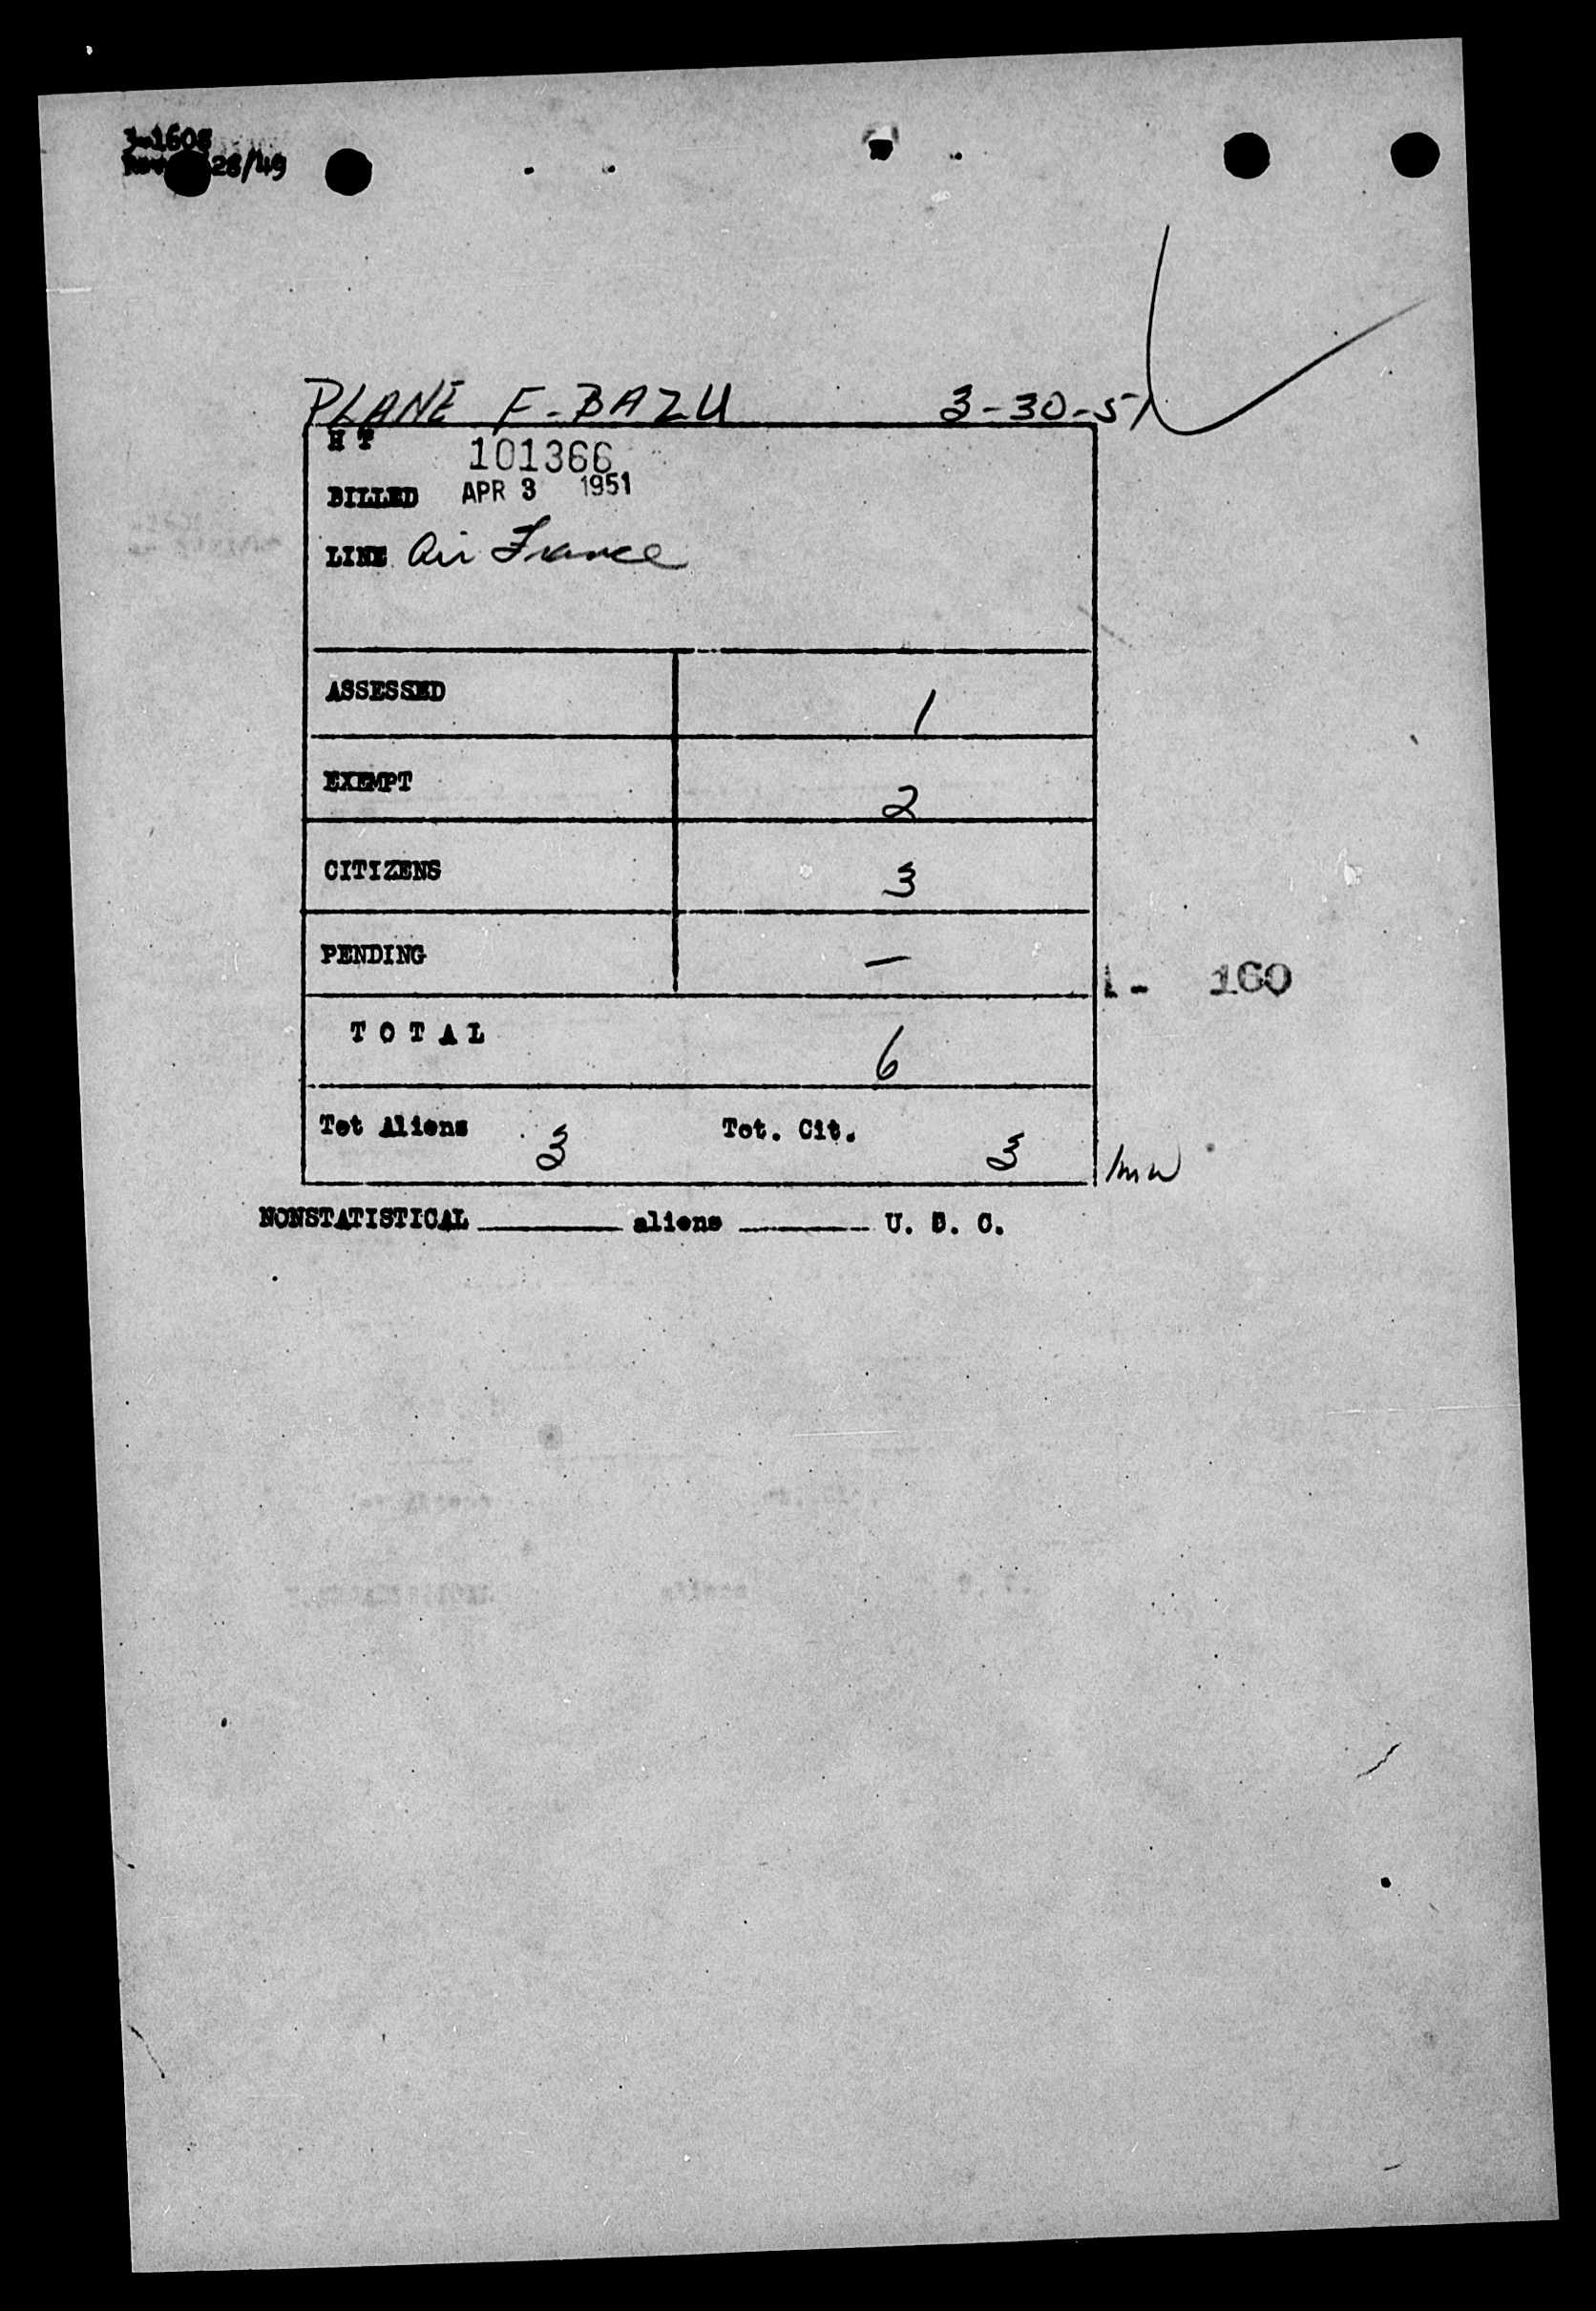 3-1608
28/49
PLANE F-BAZU 3-30-51
H T 101366
BILLED APR 3 1951
LINE Air France
ASSESSED 1
EXEMPT 2
CITIZENS 3
PENDING —
1- 160
T O T A L 6
Tot Aliens 3 Tot. Cit. 3
mw
NONSTATISTICAL ______ aliens ______ U. S. C.